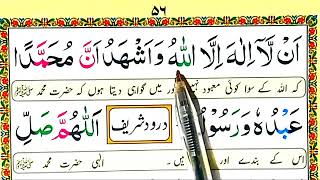 ۵۶
اَنْ لَّآ اِلٰهَ اِلَّا اللّٰهُ وَاَشْهَدُ اَنَّ مُحَمَّدًا
کہ اللہ کے سوا کوئی معبود نہیں اور میں گواہی دیتا ہوں کہ حضرت محمد ﷺ
عَبْدُهٗ وَرَسُوْلُهٗ درود شریف اَللّٰهُمَّ صَلِّ
اس کے بندے اور ہیں۔ الٰہی حضرت محمد ﷺ